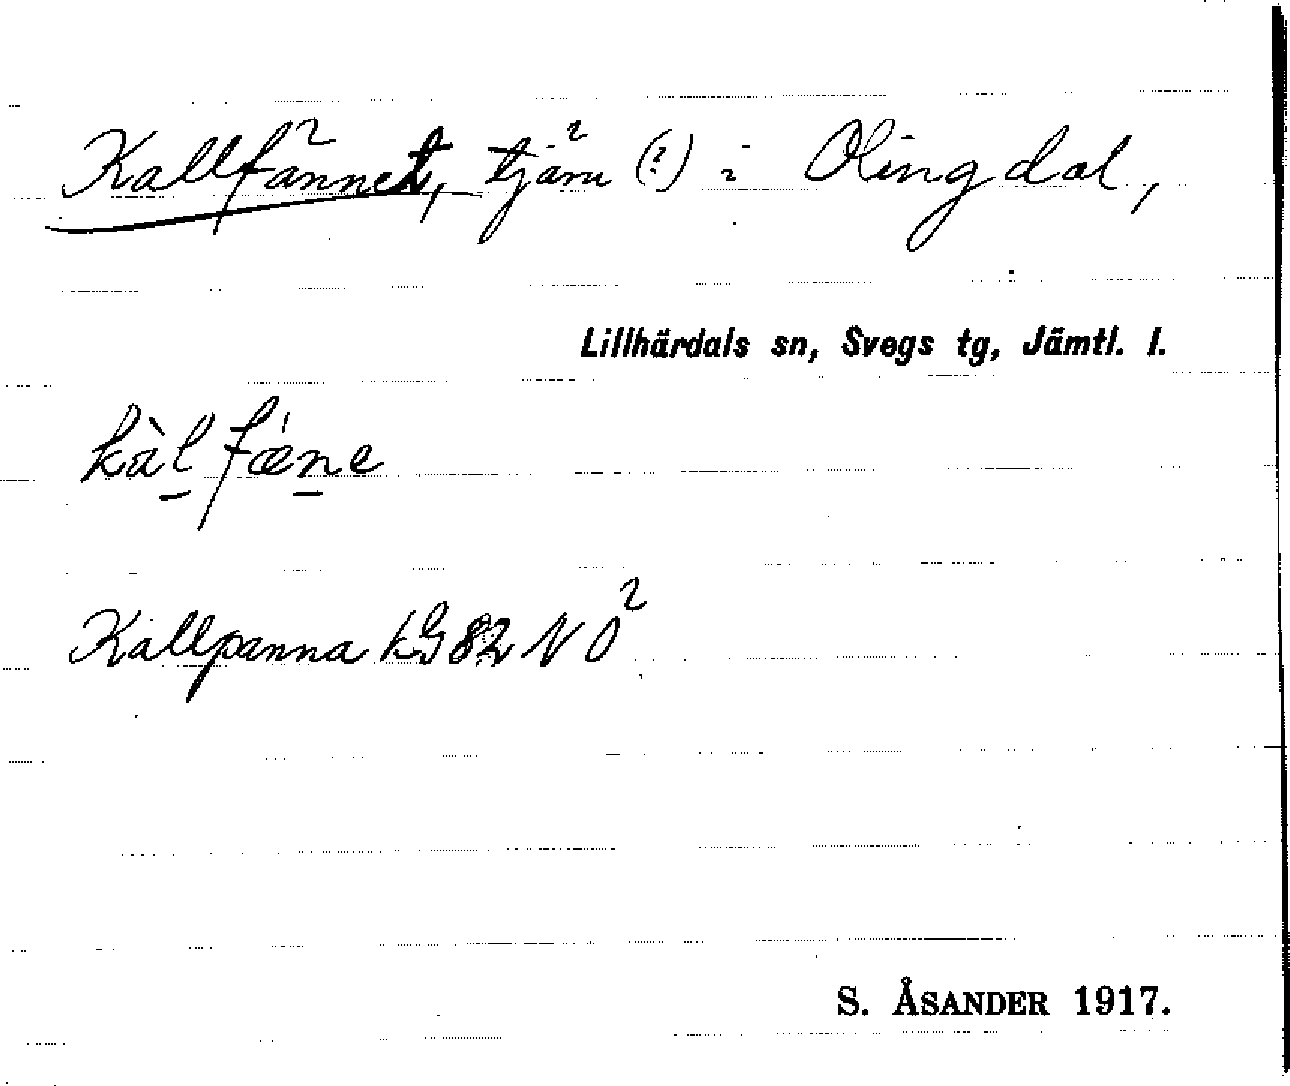 Kallfännet, tjärn (?) i Olingdal,
Lillhärdals sn, Svegs tg, Jämtl. l.
kàl̠fǽn̠e
Kallpanna kG 82 N O²
S. ÅSANDER 1917.